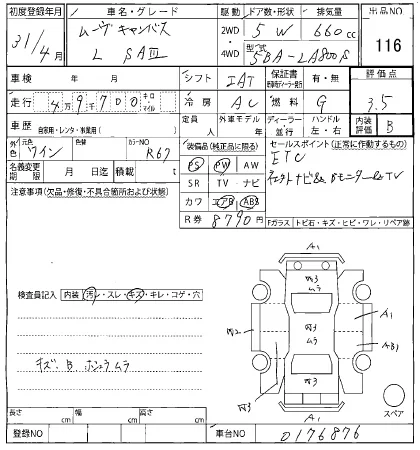 初度登録年月 車名・グレード 駆動 ドア数・形状 排気量 出品NO
31/4月 ムーヴ キャンバス 2WD 5 W 660cc 116
L SAⅢ 4WD 型式 5BA-LA800S
車検 年 月 シフト IAT 保証書 有・無 評価点
走行 4 9 7 0 0 キロ・マイル 冷房 AC 燃料 G 3.5
車歴 自家用・レンタ・事業用( ) 定員 人 外車モデル 年 ディーラー 並行 ハンドル 左・右 内装評価 B
外色 元色 ワイン 色替 カラーNO R67 装備品(純正品に限る) セールスポイント(正常に作動するもの)
名義変更期限 月 日迄 積載 t PS PW AW ETC
注意事項(欠品・修復・不具合箇所および状態) SR TV ナビ
カワ エアB ABS
R券 8790円 Fガラス トビ石・キズ・ヒビ・ワレ・リペア跡
A1
検査員記入 内装 汚レ・スレ・キズ・キレ・コゲ・穴
ムラ
A1
ムラ
AB1
キズ、B ホシュウ ムラ
A1
スペア
長さ cm 幅 cm 高さ cm
登録NO 車台NO 0176876